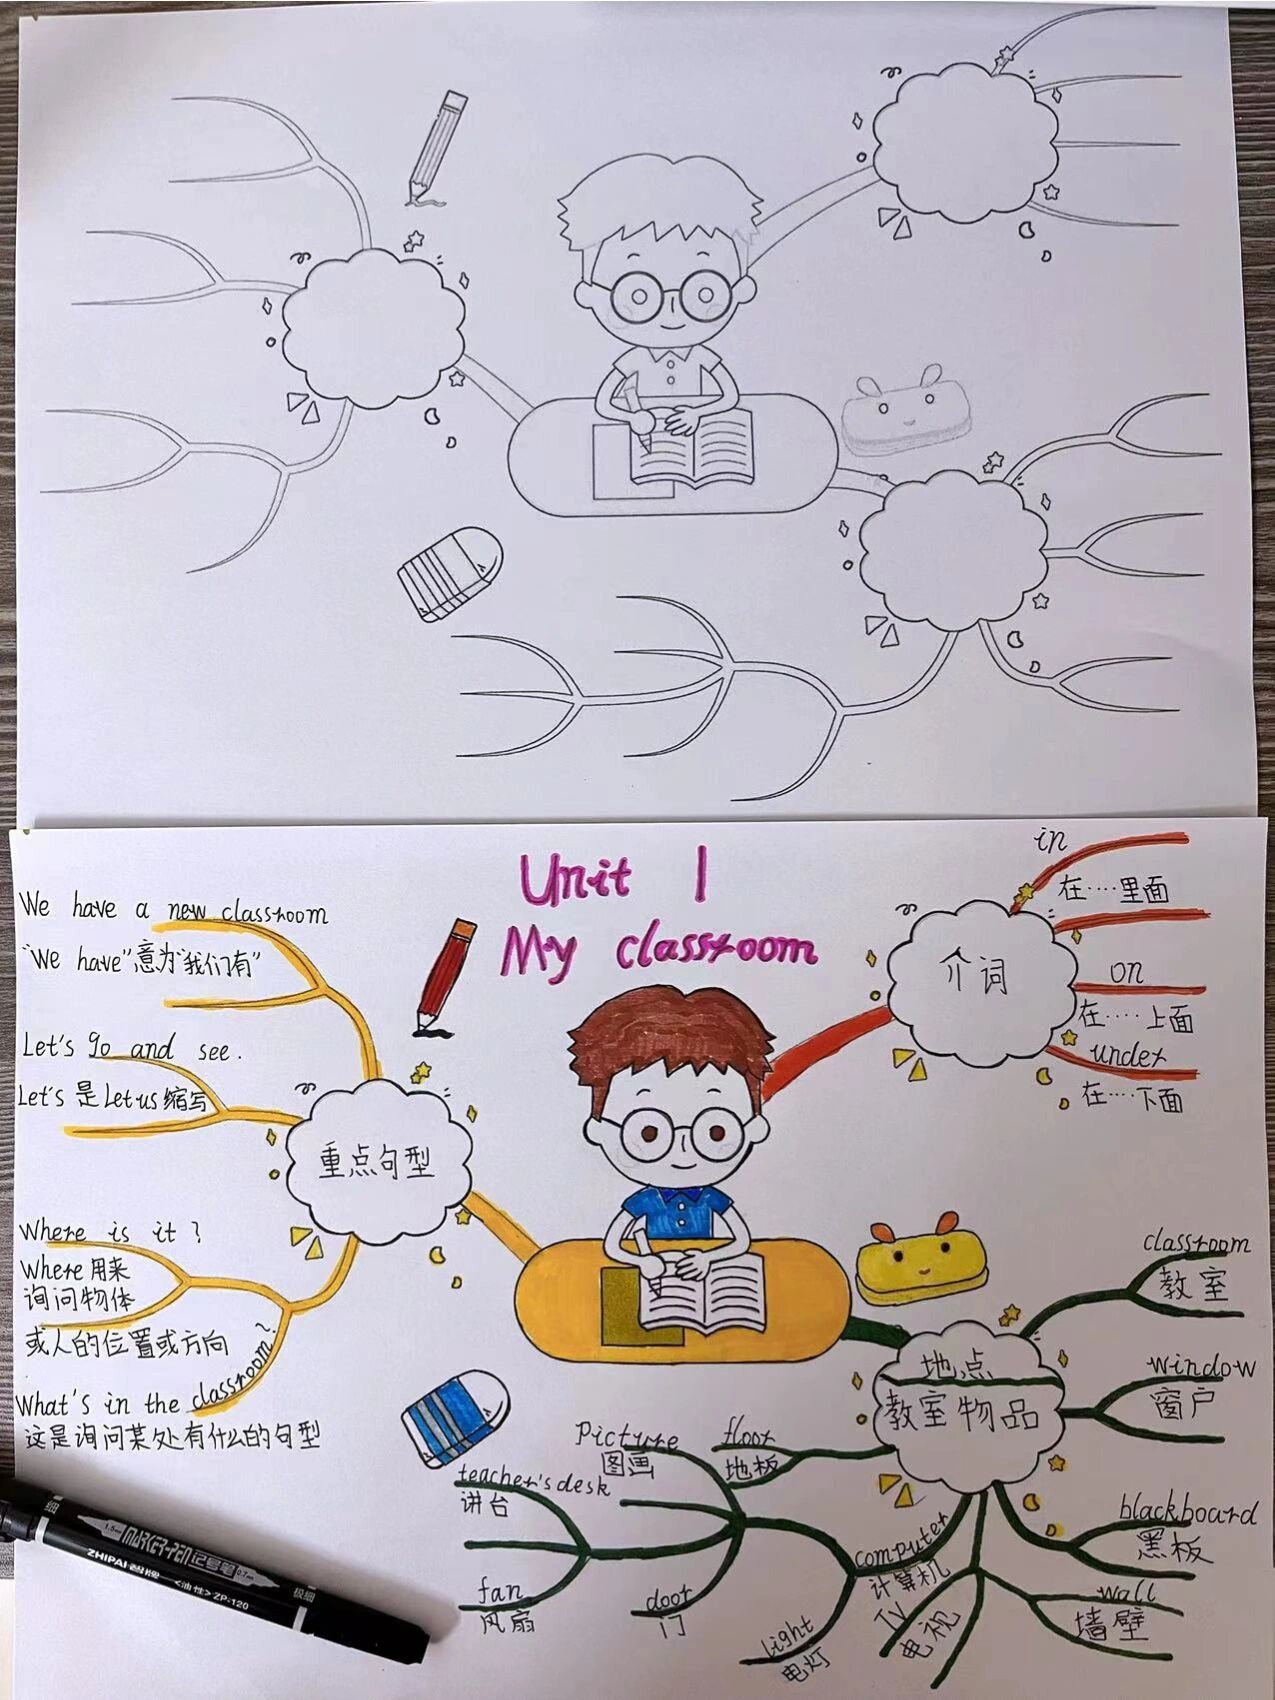 Unit 1
My classroom
We have a new classroom
"We have"意为"我们有"
Let's go and see.
Let's 是 Let us 缩写
Where is it?
Where 用来
询问物体
或人的位置或方向
What's in the classroom?
这是询问某处有什么的句型
重点句型
介词
in
在····里面
on
在····上面
under
在····下面
地点
教室物品
classroom
教室
window
窗户
blackboard
黑板
wall
墙壁
TV
电视
computer
计算机
light
电灯
floor
地板
Picture
图画
door
门
teacher's desk
讲台
fan
风扇
细
1.5mm MARKER-PEN 记号笔 0.7mm
ZHIPAI <油性> ZP-120
极细